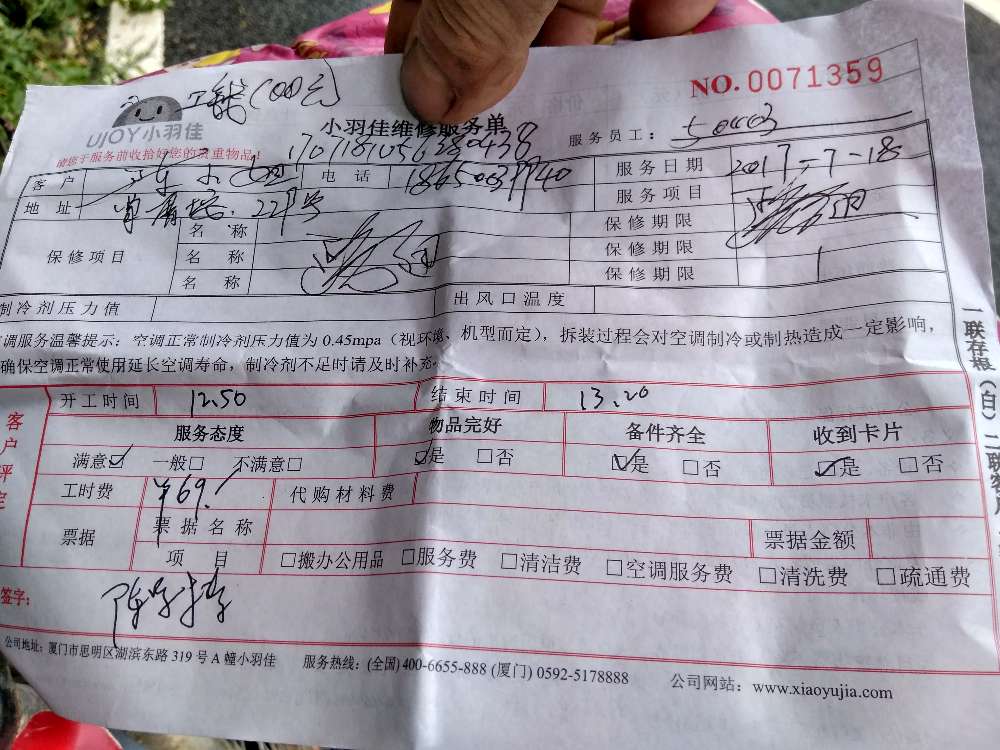 NO.0071359
UJOY小羽佳
小羽佳维修服务单
服务员工：
请您于服务前收拾好您的贵重物品！
客户 电话 服务日期 2017-7-18
地址 服务项目
保修项目 名称 保修期限
名称 保修期限
名称 保修期限
制冷剂压力值 出风口温度
调服务温馨提示：空调正常制冷剂压力值为 0.45mpa（视环境、机型而定），拆装过程会对空调制冷或制热造成一定影响，
确保空调正常使用延长空调寿命，制冷剂不足时请及时补充。
一联存根（白）二联客户
客户评定
开工时间 12.50 结束时间 13.20
服务态度 物品完好 备件齐全 收到卡片
满意☑ 一般□ 不满意□ ☑是 □否 ☑是 □否 ☑是 □否
工时费 ¥69. 代购材料费
票据 票据名称 票据金额
项目 □搬办公用品 □服务费 □清洁费 □空调服务费 □清洗费 □疏通费
签字：
公司地址：厦门市思明区湖滨东路 319 号 A 幢小羽佳 服务热线：(全国) 400-6655-888 (厦门) 0592-5178888 公司网站：www.xiaoyujia.com